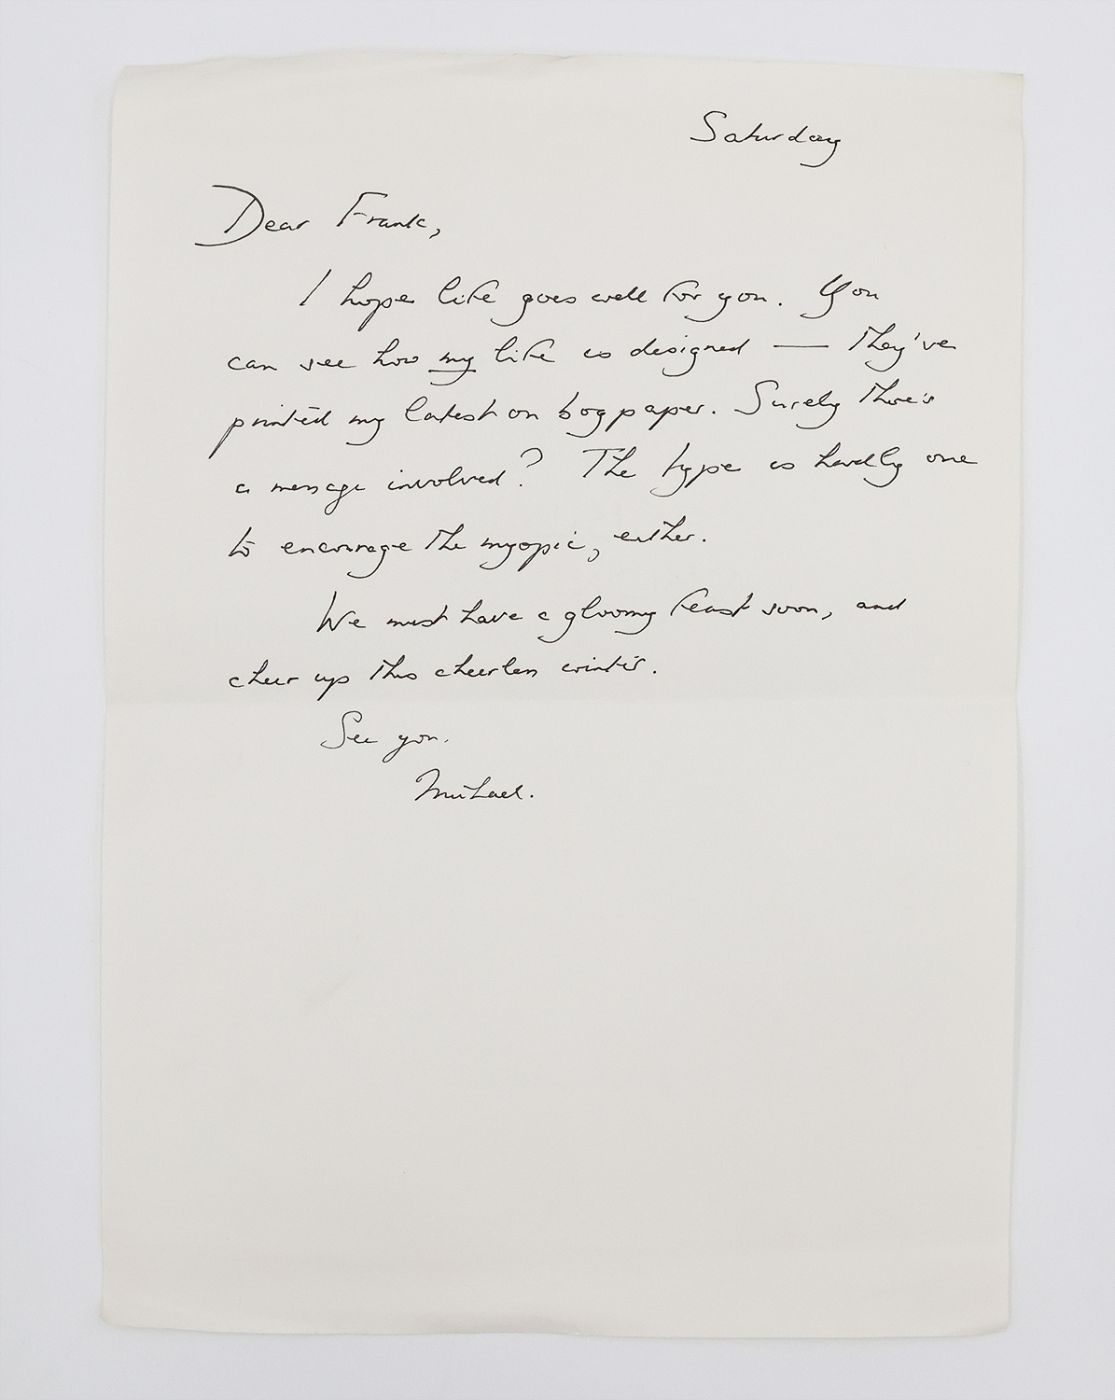 Saturday
Dear Frank,
I hope life goes well for you. You
can see how my life is designed — They've
printed my latest on bog paper. Surely there's
a message involved? The type is hardly one
to encourage the myopic, either.
We must have a gloomy feast soon, and
cheer up this cheerless winter.
See you.
Michael.